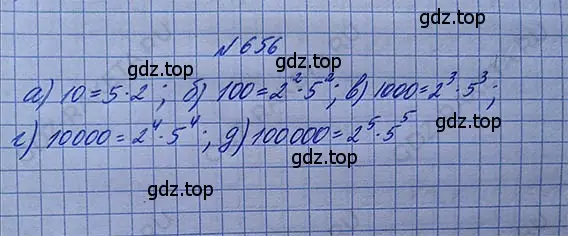 № 656
gdz.top
gdz.top
а) 10 = 5 · 2 ; б) 100 = 2² · 5² ; в) 1000 = 2³ · 5³ ;
gdz.top gdz.top
г) 10000 = 2⁴ · 5⁴ ; д) 100000 = 2⁵ · 5⁵
gdz.top
gdz.top